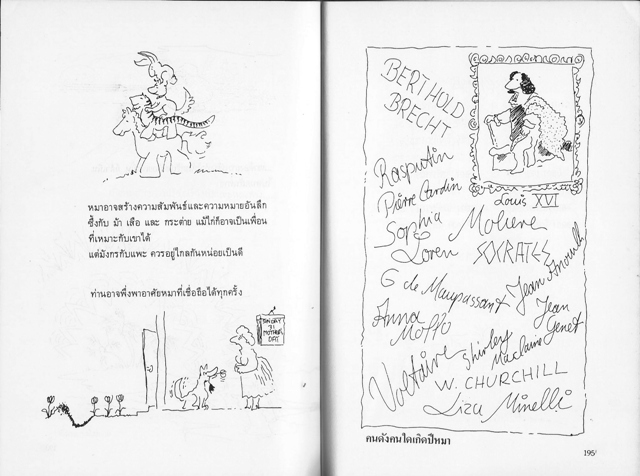 หมาอาจสร้างความสัมพันธ์และความหมายอันลึก
ซึ้งกับ ม้า เสือ และ กระต่าย แม้ไก่ก็อาจเป็นเพื่อน
ที่เหมาะกับเขาได้
แต่มังกรกับแพะ ควรอยู่ไกลกันหน่อยเป็นดี
ท่านอาจพึ่งพาอาศัยหมาที่เชื่อถือได้ทุกครั้ง
SUNDAY
31
MOTHER
DAY
BERTHOLD
BRECHT
Louis XVI
Rasputin
Pierre Cardin
Sophia
Loren
Moliere
SOCRATES
G de Maupassant
Jean Anouilh
Anna
Moffo
Jean
Genet
Voltaire
Shirley
Maclaine
W. CHURCHILL
Liza Minelli
คนดังคนใดเกิดปีหมา
195